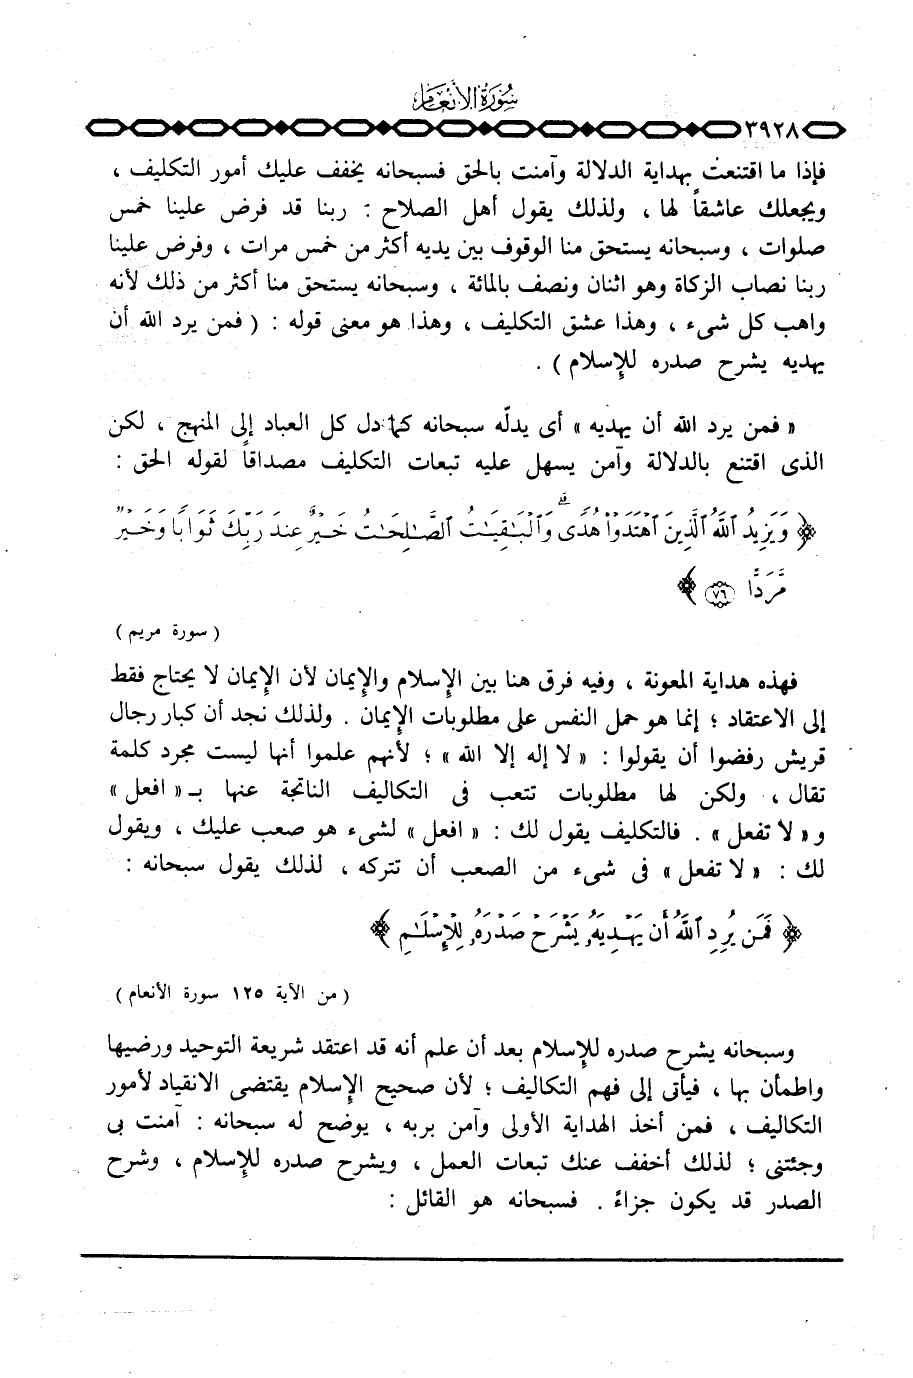 سُورَةُ الأَنْعَام
٣٩٢٨
فإذا ما اقتنعت بهداية الدلالة وآمنت بالحق فسبحانه يخفف عليك أمور التكليف ،
ويجعلك عاشقاً لها ، ولذلك يقول أهل الصلاح : ربنا قد فرض علينا خمس
صلوات ، وسبحانه يستحق منا الوقوف بين يديه أكثر من خمس مرات ، وفرض علينا
ربنا نصاب الزكاة وهو اثنان ونصف بالمائة ، وسبحانه يستحق منا أكثر من ذلك لأنه
واهب كل شىء ، وهذا عشق التكليف ، وهذا هو معنى قوله : ( فمن يرد الله أن
يهديه يشرح صدره للإسلام ) .
« فمن يرد الله أن يهديه » أى يدلّه سبحانه كما دل كل العباد إلى المنهج ، لكن
الذى اقتنع بالدلالة وآمن يسهل عليه تبعات التكليف مصداقاً لقوله الحق :
﴿ وَيَزِيدُ ٱللَّهُ ٱلَّذِينَ ٱهْتَدَوْا۟ هُدًى ۗ وَٱلْبَٰقِيَٰتُ ٱلصَّٰلِحَٰتُ خَيْرٌ عِندَ رَبِّكَ ثَوَابًا وَخَيْرٌ
مَّرَدًّا ٧٦ ﴾
( سورة مريم )
فهذه هداية المعونة ، وفيه فرق هنا بين الإسلام والإيمان لأن الإيمان لا يحتاج فقط
إلى الاعتقاد ؛ إنما هو حمل النفس على مطلوبات الإيمان . ولذلك نجد أن كبار رجال
قريش رفضوا أن يقولوا : « لا إله إلا الله » ؛ لأنهم علموا أنها ليست مجرد كلمة
تقال ، ولكن لها مطلوبات تتعب فى التكاليف الناتجة عنها بـ « افعل »
و « لا تفعل » . فالتكليف يقول لك : « افعل » لشىء هو صعب عليك ، ويقول
لك : « لا تفعل » فى شىء من الصعب أن تتركه ، لذلك يقول سبحانه :
﴿ فَمَن يُرِدِ ٱللَّهُ أَن يَهْدِيَهُۥ يَشْرَحْ صَدْرَهُۥ لِلْإِسْلَٰمِ ﴾
( من الآية ١٢٥ سورة الأنعام )
وسبحانه يشرح صدره للإسلام بعد أن علم أنه قد اعتقد شريعة التوحيد ورضيها
واطمأن بها ، فيأتى إلى فهم التكاليف ؛ لأن صحيح الإسلام يقتضى الانقياد لأمور
التكاليف ، فمن أخذ الهداية الأولى وآمن بربه ، يوضح له سبحانه : آمنت بى
وجئتنى ؛ لذلك أخفف عنك تبعات العمل ، ويشرح صدره للإسلام ، وشرح
الصدر قد يكون جزاءً . فسبحانه هو القائل :